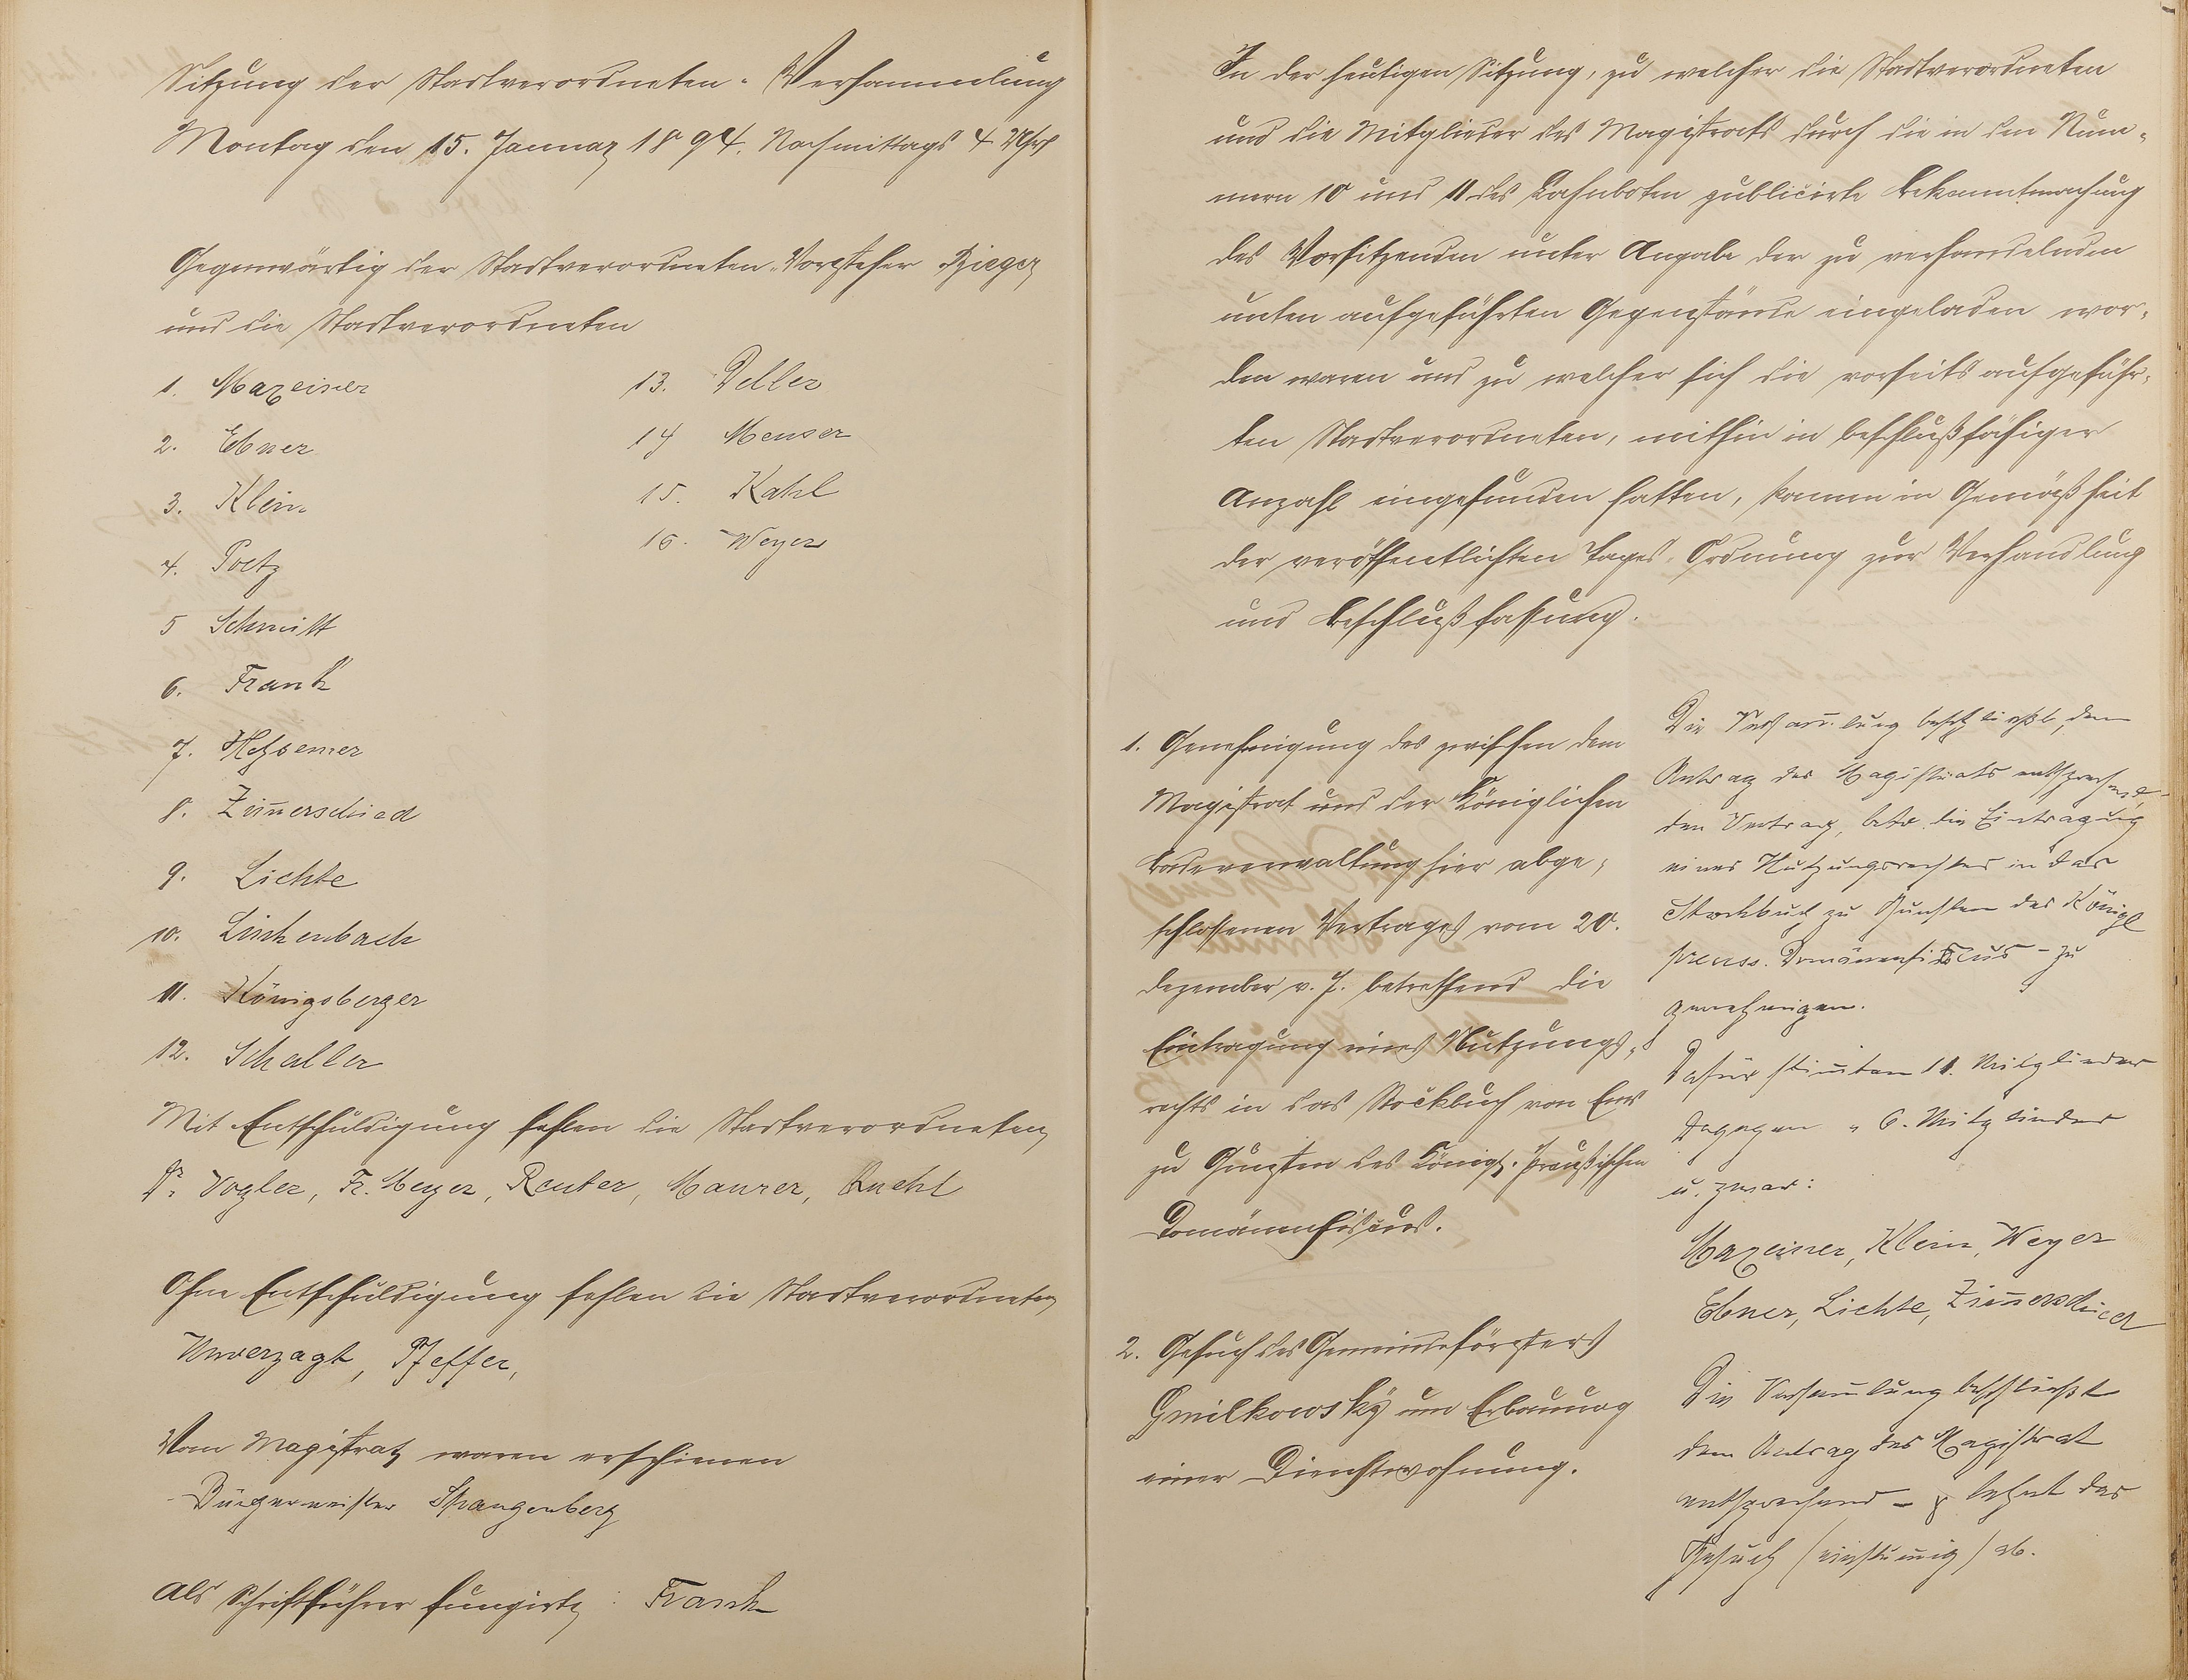 Sitzung der Stadtverordneten-Versammlung
Montag den 15. Januar 1894. Nachmittags 4 Uhr
Gegenwärtig der Stadtverordneten-Vorsteher
und die Stadtverordneten
1. Maxeiner
2. Ebner
3. Klein
4. Poetz
5 Schmitt
6. Frank
7. Heßemer
8. Zim̅erschied
9. Lichte
10. Linkenbach
11. Königsberger
12. Schaller
13. Deller
14 Meuser
15. Kahl
16. Weyer
Mit Entschuldigung fehlen die Stadtverordneten
Dr. Vogler, Fr. Meyer, Reuter, Maurer, Ruehl
Ohne Entschuldigung fehlen die Stadtverordneten
Unverzagt, Pfeffer,
Vom Magistrat waren erschienen
Bürgermeister Spangenberg
Als Schriftführer fungirte: Frank
In der heutigen Sitzung, zu welcher die Stadtverordneten
und die Mitglieder des Magistrats durch die in den Num-
mern 10 und 11 des Lahnboten publicirte Bekanntmachung
des Vorsitzenden unter Angabe der zu verhandelnden
unten aufgeführten Gegenstände eingeladen wor-
den waren und zu welcher sich die vorseits aufgeführ-
ten Stadtverordneten, mithin in beschlußfähiger
Anzahl eingefunden hatten, kamen in Gemäßheit
der veröffentlichten Tages-Ordnung zur Verhandlung
und Beschlußfassung.
1. Genehmigung des zwischen dem
Magistrat und der Königlichen
Badeverwaltung hier abge-
schlossenen Vertrages vom 20.
Dezember v. J. betreffend die
Eintragung eines Nutzungs-
rechts in das Stockbuch von Ems
zu Gunsten des Königl. Preußischen
Domänenfiscus.
Die Versam̅lung beschließt, dem
Antrag des Magistrats entsprechend,
den Vertrag, betr. die Eintragung
eines Nutzungsrechtes in das
Stockbuch zu Gunsten des Königl
preuss. Domänenfiscus - zu
genehmigen.
Dafür stim̅ten 11. Mitglieder
Dagegen " 6. Mitglieder
u. zwar:
Maxeiner, Klein, Weyer
Ebner, Lichte, Zim̅erschied
2. Gesuch des Gemeindeförsters
Gmilkowsky um Erbauung
einer Dienstwohnung.
Die Versam̅lung beschließt
dem Antrag des Magistrat
entsprechend - & lehnt das
Gesuch (einstim̅ig) ab.